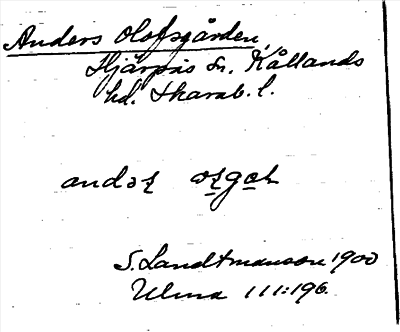 Anders Olofsgården,
Hjärpås sn. Kållands
hd. Skarab. l.
S. Landtmanson 1900
Ulma 111:196.